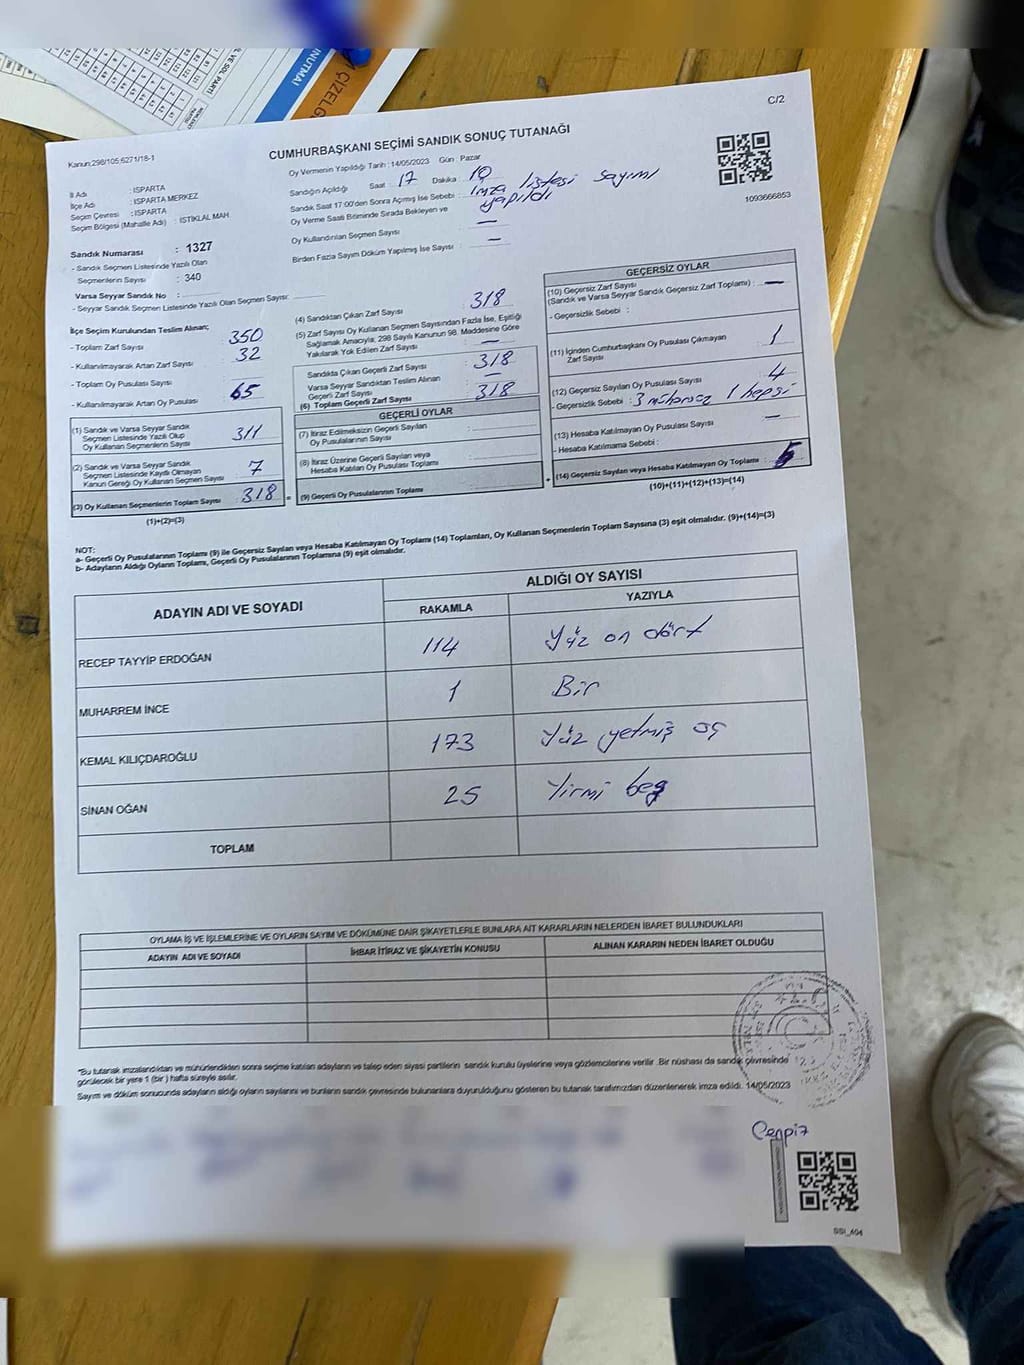 UNUTMA!
ÇİZELG
VE SOL PARTİ
C/2
Kanun;298/105;6271/18-1
CUMHURBAŞKANI SEÇİMİ SANDIK SONUÇ TUTANAĞI
İl Adı : ISPARTA
İlçe Adı : ISPARTA MERKEZ
Seçim Çevresi : ISPARTA
Seçim Bölgesi (Mahalle Adı) : ISTİKLAL MAH
Oy Vermenin Yapıldığı Tarih : 14/05/2023 Gün : Pazar
Sandığın Açıldığı Saat : 17 Dakika : 10
Sandık Saat 17:00'den Sonra Açmış İse Sebebi : İmza listesi sayımı
yapıldı
Oy Verme Saati Bitiminde Sırada Bekleyen ve
Oy Kullandırılan Seçmen Sayısı : —
Birden Fazla Sayım Döküm Yapılmış İse Sayısı : —
1093666853
Sandık Numarası : 1327
- Sandık Seçmen Listesinde Yazılı Olan
Seçmenlerin Sayısı : 340
Varsa Seyyar Sandık No :
- Seyyar Sandık Seçmen Listesinde Yazılı Olan Seçmen Sayısı:
İlçe Seçim Kurulundan Teslim Alınan;
- Toplam Zarf Sayısı 350
- Kullanılmayarak Artan Zarf Sayısı 32
- Toplam Oy Pusulası Sayısı
- Kullanılmayarak Artan Oy Pusulası 65
(1) Sandık ve Varsa Seyyar Sandık
Seçmen Listesinde Yazılı Olup
Oy Kullanan Seçmenlerin Sayısı 311
(2) Sandık ve Varsa Seyyar Sandık
Seçmen Listesinde Kayıtlı Olmayan
Kanun Gereği Oy Kullanan Seçmen Sayısı 7
(3) Oy Kullanan Seçmenlerin Toplam Sayısı 318 =
(1)+(2)=(3)
(4) Sandıktan Çıkan Zarf Sayısı 318
(5) Zarf Sayısı Oy Kullanan Seçmen Sayısından Fazla İse, Eşitliği
Sağlamak Amacıyla; 298 Sayılı Kanunun 98. Maddesine Göre
Yakılarak Yok Edilen Zarf Sayısı : —
Sandıkta Çıkan Geçerli Zarf Sayısı : 318
Varsa Seyyar Sandıktan Teslim Alınan
Geçerli Zarf Sayısı : —
(6) Toplam Geçerli Zarf Sayısı : 318
GEÇERLİ OYLAR
(7) İtiraz Edilmeksizin Geçerli Sayılan
Oy Pusulalarının Sayısı :
(8) İtiraz Üzerine Geçerli Sayılan veya
Hesaba Katılan Oy Pusulası Toplamı :
(9) Geçerli Oy Pusulalarının Toplamı +
GEÇERSİZ OYLAR
(10) Geçersiz Zarf Sayısı
(Sandık ve Varsa Seyyar Sandık Geçersiz Zarf Toplamı) : —
- Geçersizlik Sebebi :
(11) İçinden Cumhurbaşkanı Oy Pusulası Çıkmayan
Zarf Sayısı : 1
(12) Geçersiz Sayılan Oy Pusulası Sayısı : 4
- Geçersizlik Sebebi : 3 mühürsüz 1 hepsi
(13) Hesaba Katılmayan Oy Pusulası Sayısı : —
- Hesaba Katılmama Sebebi :
(14) Geçersiz Sayılan veya Hesaba Katılmayan Oy Toplamı : 5
(10)+(11)+(12)+(13)=(14)
NOT:
a- Geçerli Oy Pusulalarının Toplamı (9) ile Geçersiz Sayılan veya Hesaba Katılmayan Oy Toplamı (14) Toplamları, Oy Kullanan Seçmenlerin Toplam Sayısına (3) eşit olmalıdır. (9)+(14)=(3)
b- Adayların Aldığı Oyların Toplamı, Geçerli Oy Pusulalarının Toplamına (9) eşit olmalıdır.
ADAYIN ADI VE SOYADI
ALDIĞI OY SAYISI
RAKAMLA YAZIYLA
RECEP TAYYİP ERDOĞAN 114 Yüz on dört
MUHARREM İNCE 1 Bir
KEMAL KILIÇDAROĞLU 173 Yüz yetmiş üç
SİNAN OĞAN 25 Yirmi beş
TOPLAM
OYLAMA İŞ VE İŞLEMLERİNE VE OYLARIN SAYIM VE DÖKÜMÜNE DAİR ŞİKAYETLERLE BUNLARA AİT KARARLARIN NELERDEN İBARET BULUNDUKLARI
ADAYIN ADI VE SOYADI İHBAR İTİRAZ VE ŞİKAYETİN KONUSU ALINAN KARARIN NEDEN İBARET OLDUĞU
*Bu tutanak imzalandıktan ve mühürlendikten sonra seçime katılan adayların ve talep eden siyasi partilerin sandık kurulu üyelerine veya gözlemcilerine verilir .Bir nüshası da sandık çevresinde
görülecek bir yere 1 (bir ) hafta süreyle asılır.
Sayım ve döküm sonucunda adayların aldığı oyların sayılarını ve bunların sandık çevresinde bulunanlara duyurulduğunu gösteren bu tutanak tarafımızdan düzenlenerek imza edildi. 14/05/2023
SSI_404